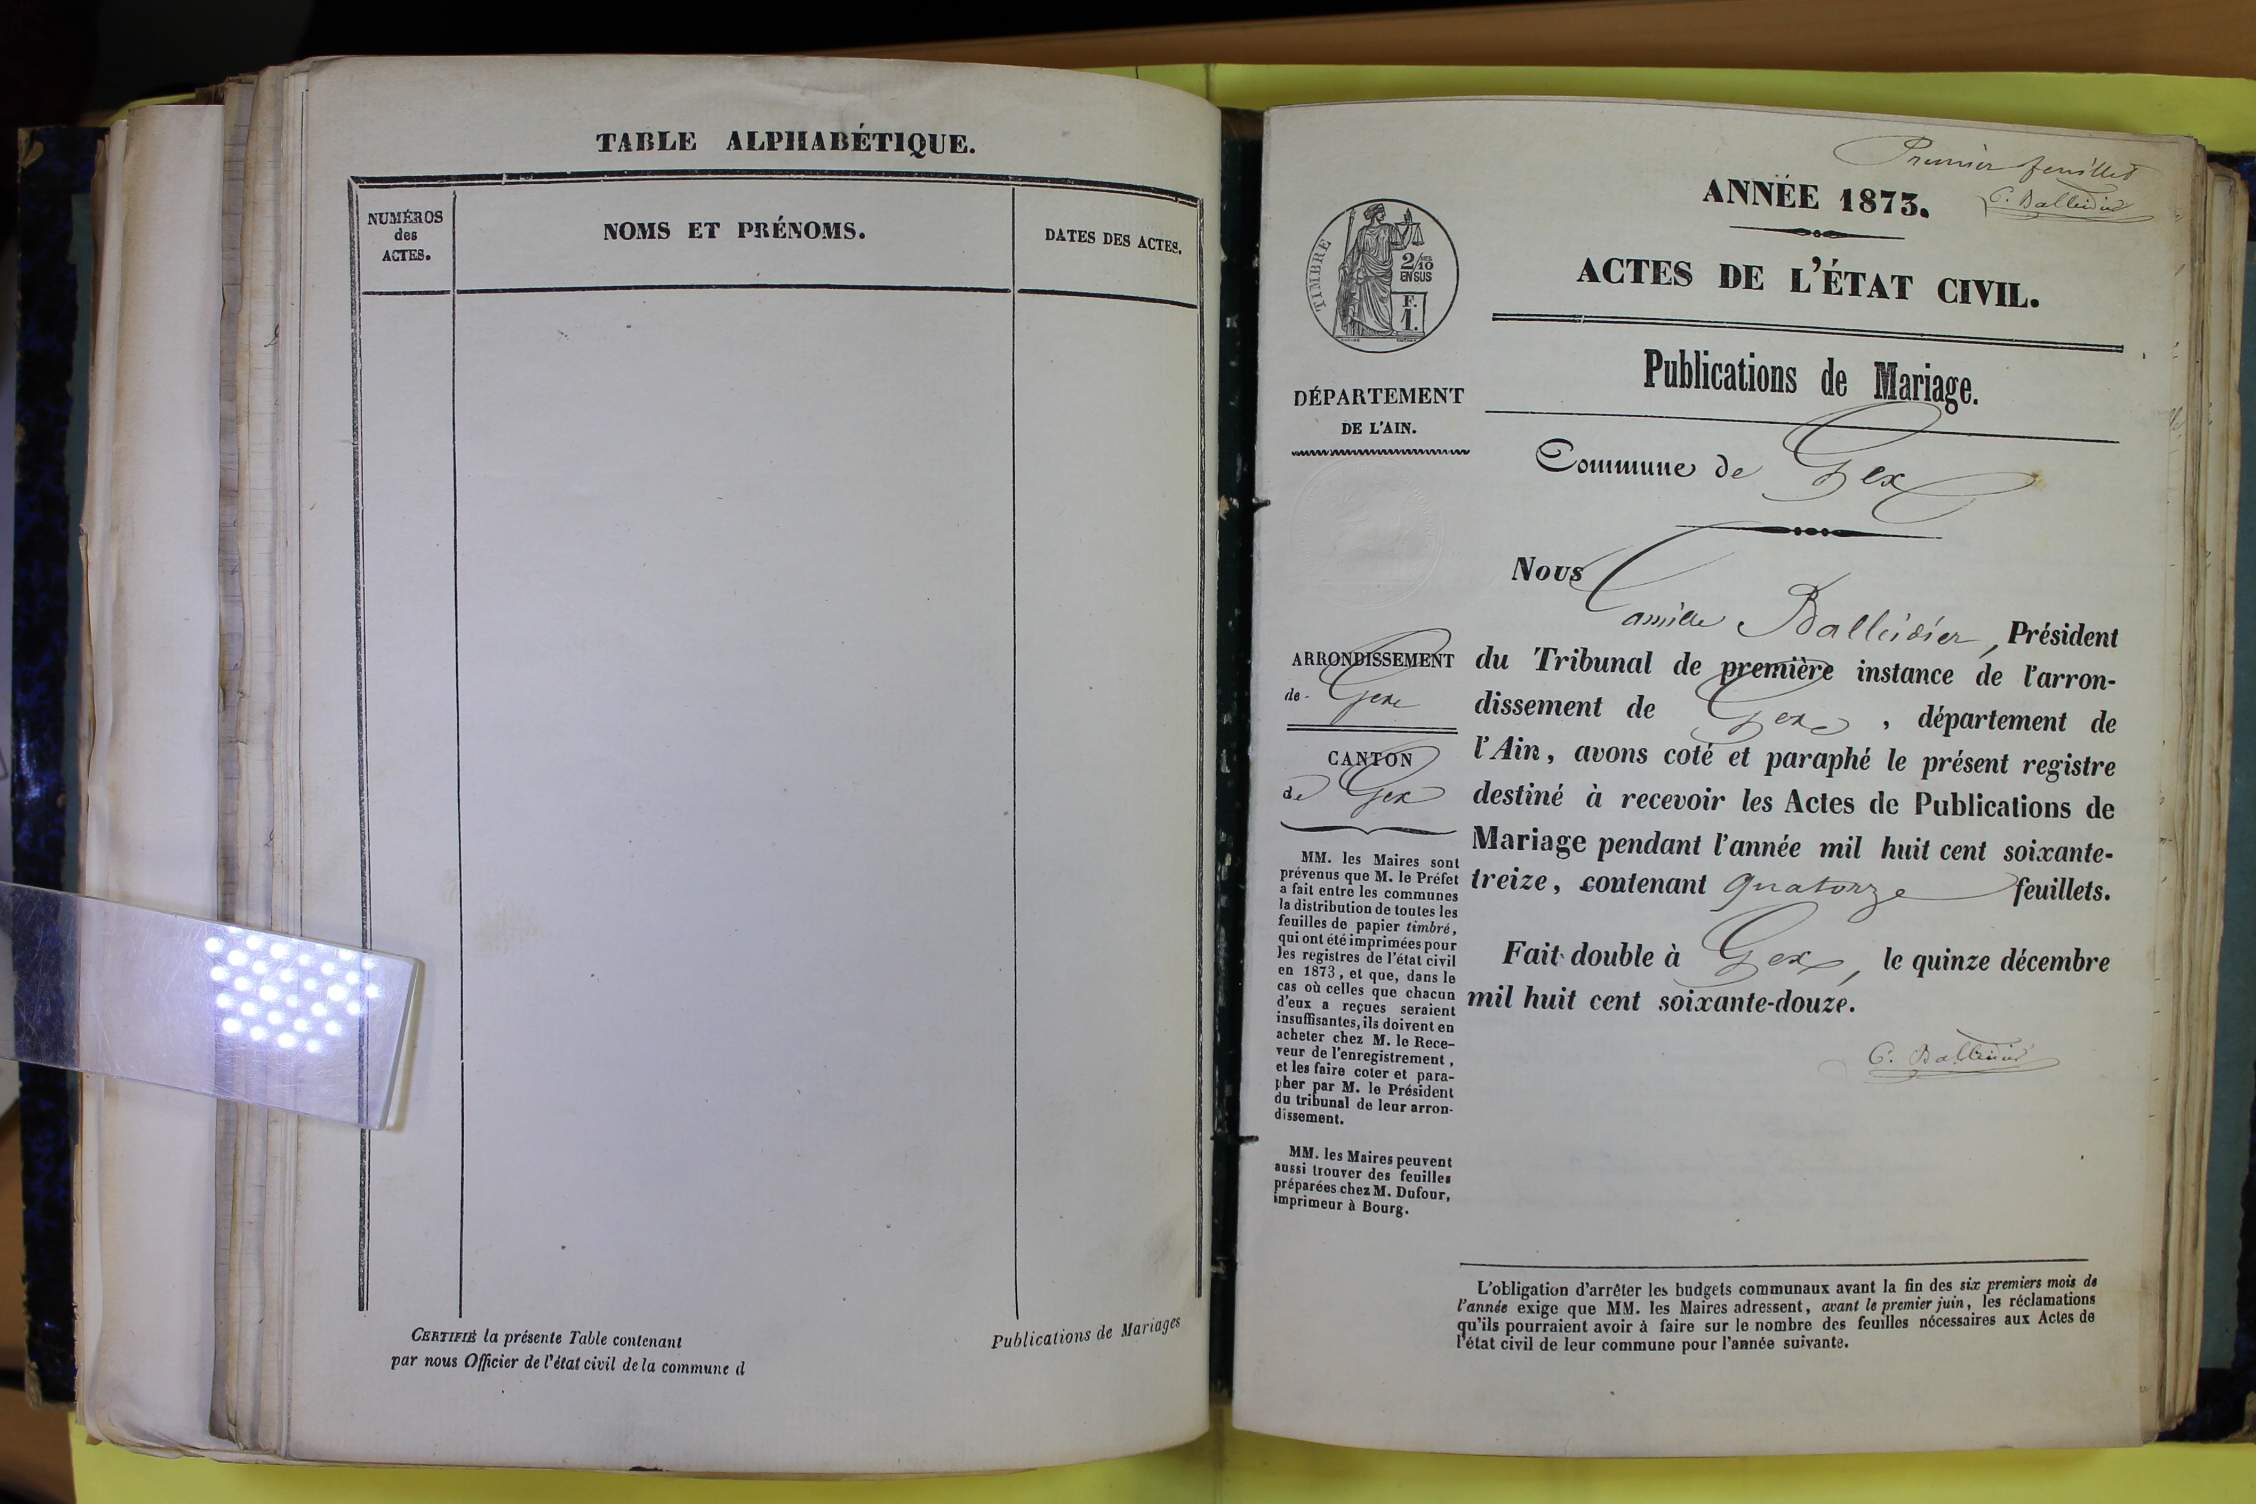 TABLE ALPHABÉTIQUE.
NUMÉROS
des
ACTES.
NOMS ET PRÉNOMS.
DATES DES ACTES.
CERTIFIÉ la présente Table contenant
par nous Officier de l'état civil de la commune d
Publications de Mariages
Premier feuillet
C. Balleidier
ANNÉE 1873.
ACTES DE L'ÉTAT CIVIL.
TIMBRE
2/10
EN SUS
F.
1.
Publications de Mariage.
DÉPARTEMENT
DE L'AIN.
Commune de Gex
Nous Camille Balleidier, Président
du Tribunal de première instance de l'arron-
dissement de Gex, département de
l'Ain, avons coté et paraphé le présent registre
destiné à recevoir les Actes de Publications de
Mariage pendant l'année mil huit cent soixante-
treize, contenant quatorze feuillets.
Fait double à Gex, le quinze décembre
mil huit cent soixante-douze.
C. Balleidier
ARRONDISSEMENT
de Gex
CANTON
de Gex
MM. les Maires sont
prévenus que M. le Préfet
a fait entre les communes
la distribution de toutes les
feuilles de papier timbré,
qui ont été imprimées pour
les registres de l'état civil
en 1873, et que, dans le
cas où celles que chacun
d'eux a reçues seraient
insuffisantes, ils doivent en
acheter chez M. le Rece-
veur de l'enregistrement,
et les faire coter et para-
pher par M. le Président
du tribunal de leur arron-
dissement.
MM. les Maires peuvent
aussi trouver des feuilles
préparées chez M. Dufour,
imprimeur à Bourg.
L'obligation d'arrêter les budgets communaux avant la fin des six premiers mois de
l'année exige que MM. les Maires adressent, avant le premier juin, les réclamations
qu'ils pourraient avoir à faire sur le nombre des feuilles nécessaires aux Actes de
l'état civil de leur commune pour l'année suivante.